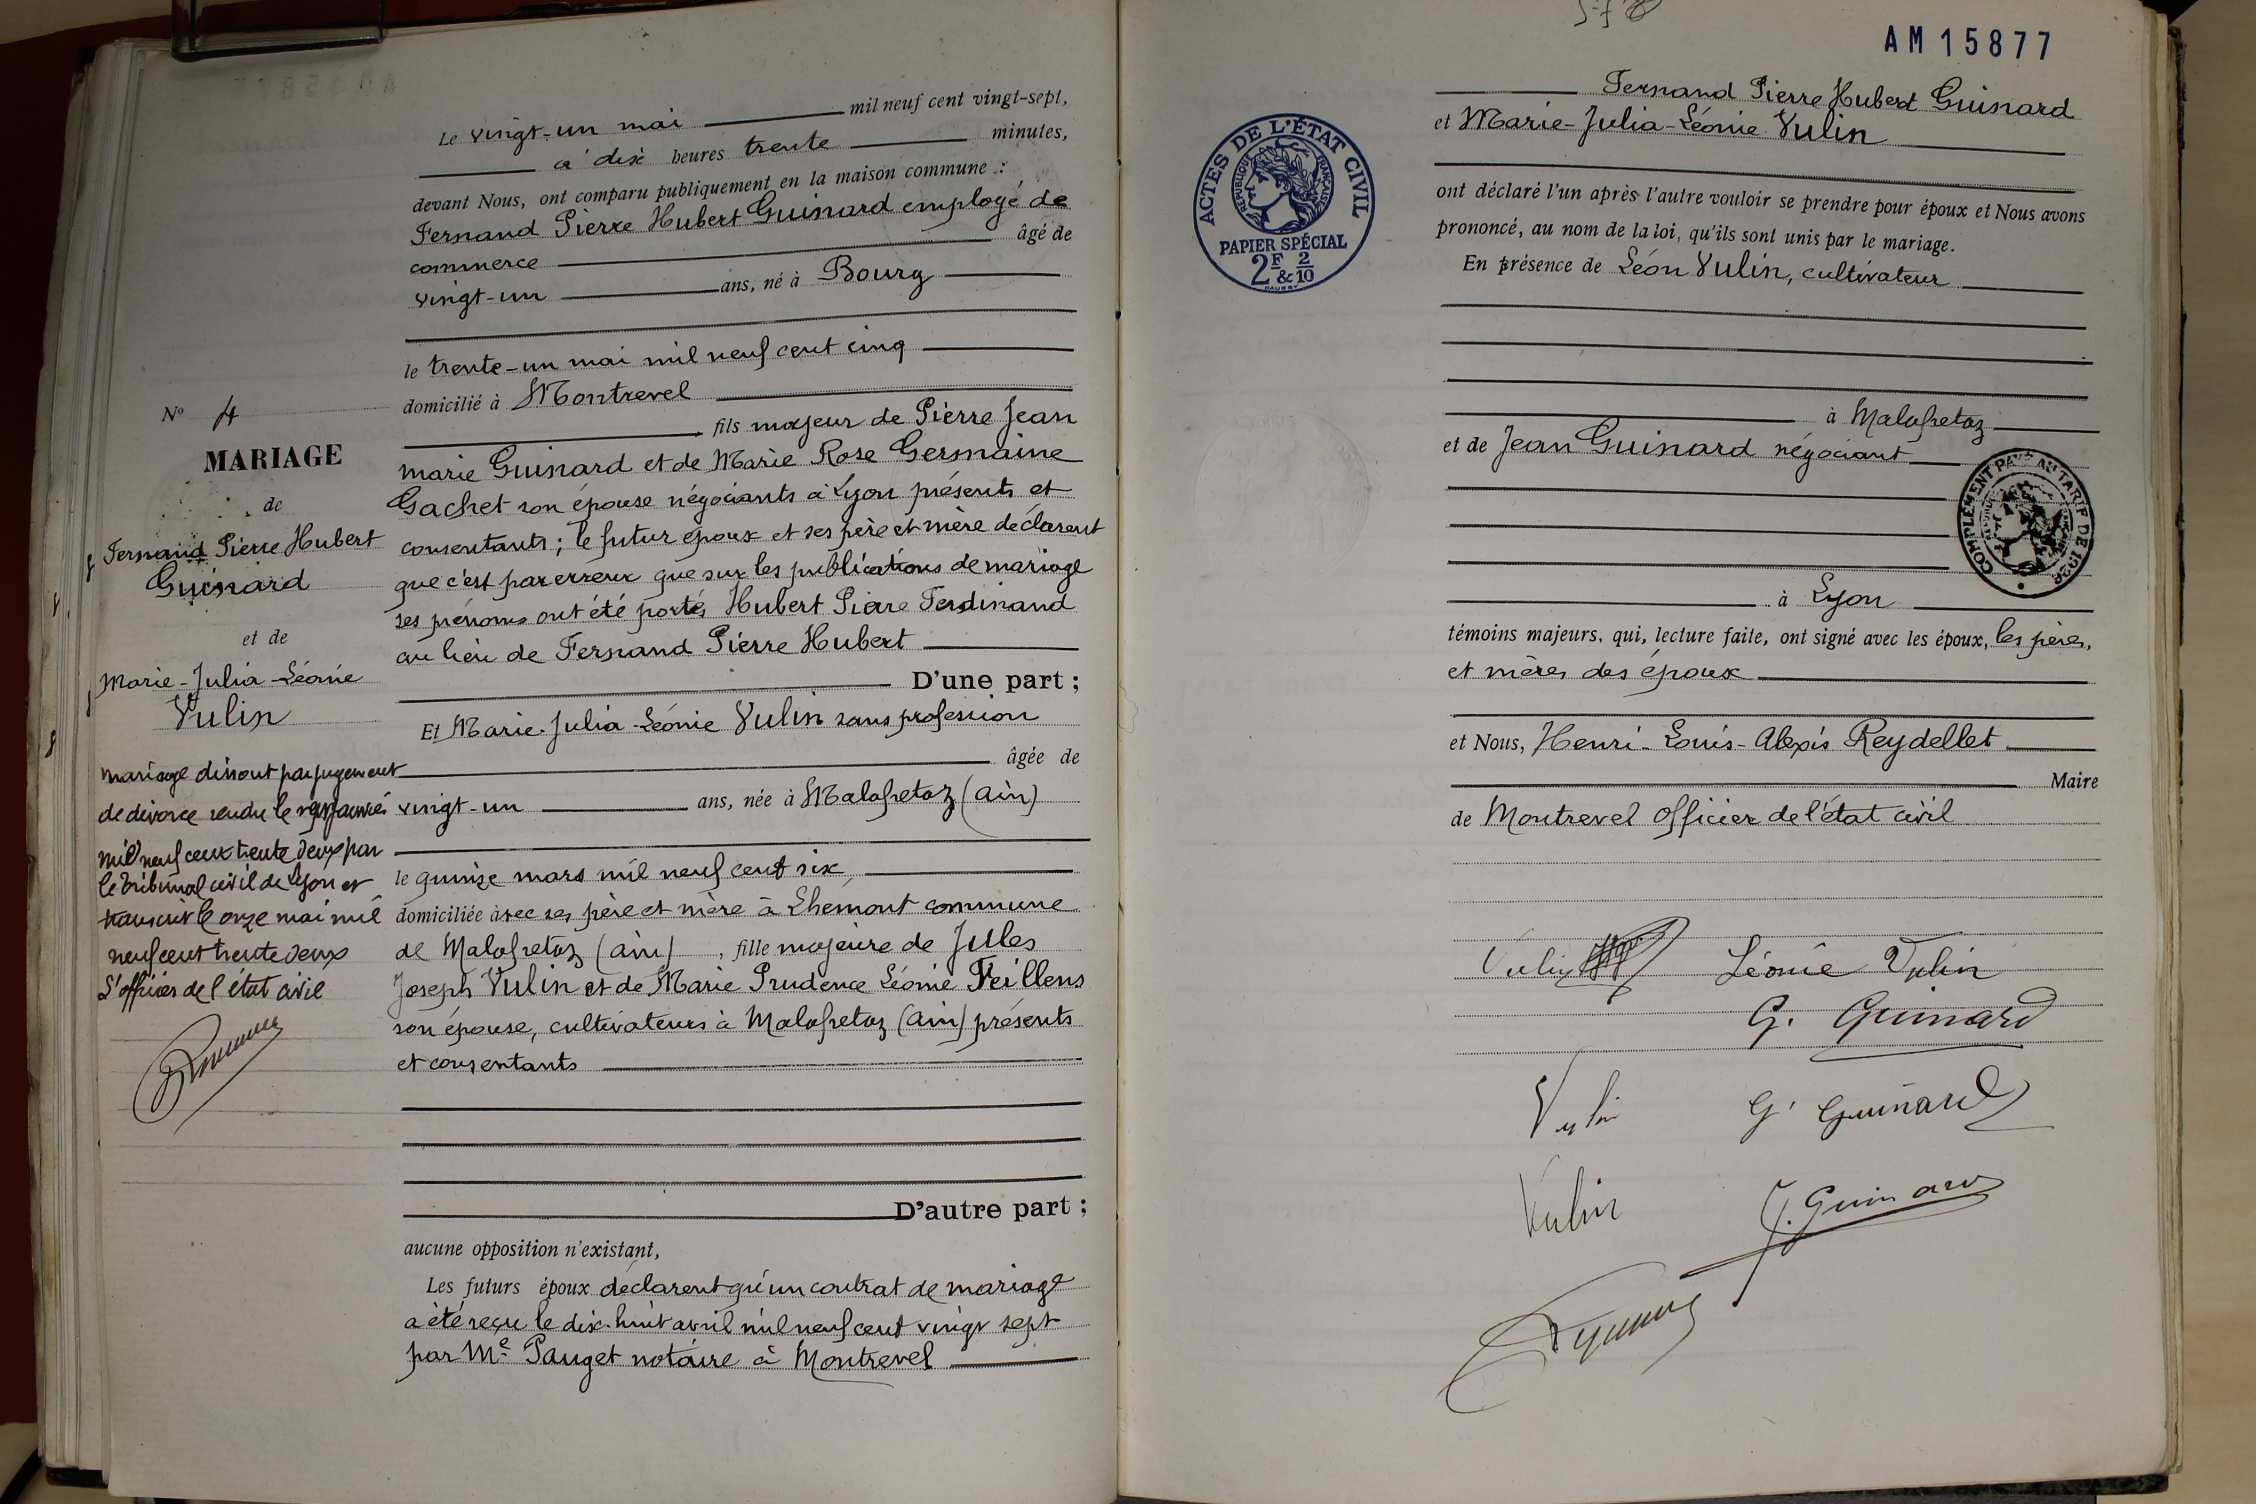 Le vingt-un mai mil neuf cent vingt-sept,
à dix heures trente minutes,
devant Nous, ont comparu publiquement en la maison commune :
Fernand Pierre Hubert Guinard employé de
commerce âgé de
vingt-un ans, né à Bourg
le trente-un mai mil neuf cent cinq
domicilié à Montrevel
fils majeur de Pierre Jean
marie Guinard et de Marie Rose Germaine
Gachet son épouse négociants à Lyon présents et
consentants ; le futur époux et ses père et mère déclarent
que c'est par erreur que sur les publications de mariage
ses prénoms ont été portés Hubert Pierre Ferdinand
au lieu de Fernand Pierre Hubert
D'une part ;
Et Marie-Julia-Léonie Vulin sans profession
âgée de
vingt-un ans, née à Malafretaz (ain)
le quinze mars mil neuf cent six,
domiciliée avec ses père et mère à Lhemont commune
de Malafretaz (ain), fille majeure de Jules
Joseph Vulin et de Marie Prudence Léonie Feillens
son épouse, cultivateurs à Malafretaz (ain) présents
et consentants
D'autre part ;
aucune opposition n'existant,
Les futurs époux déclarent qu'un contrat de mariage
a été reçu le dix-huit avril mil neuf cent vingt sept
par Me Pauget notaire à Montrevel
No 4
MARIAGE
de
Fernand Pierre Hubert
Guinard
et de
Marie-Julia-Léonie
Vulin
mariage dissout par jugement
de divorce rendu le janvier
mil neuf cent trente deux par
le tribunal civil de Lyon et
transcrit le onze mai mil
neuf cent trente deux
L'officier de l'état civil
AM 15877
Fernand Pierre Hubert Guinard
et Marie-Julia-Léonie Vulin
ACTES DE L'ÉTAT CIVIL
RÉPUBLIQUE FRANÇAISE
PAPIER SPÉCIAL
2F & 2/10
ont déclaré l'un après l'autre vouloir se prendre pour époux et Nous avons
prononcé, au nom de la loi, qu'ils sont unis par le mariage.
En présence de Léon Vulin, cultivateur
à Malafretaz
et de Jean Guinard négociant
COMPLÉMENT PAYÉ AU TARIF DE 1926
à Lyon
témoins majeurs, qui, lecture faite, ont signé avec les époux, les pères,
et mères des époux
et Nous, Henri-Louis-Alexis Reydellet
Maire
de Montrevel officier de l'état civil
Vulin Léonie Vulin
G. Guinard
Vulin G. Guinard
Vulin J. Guinard